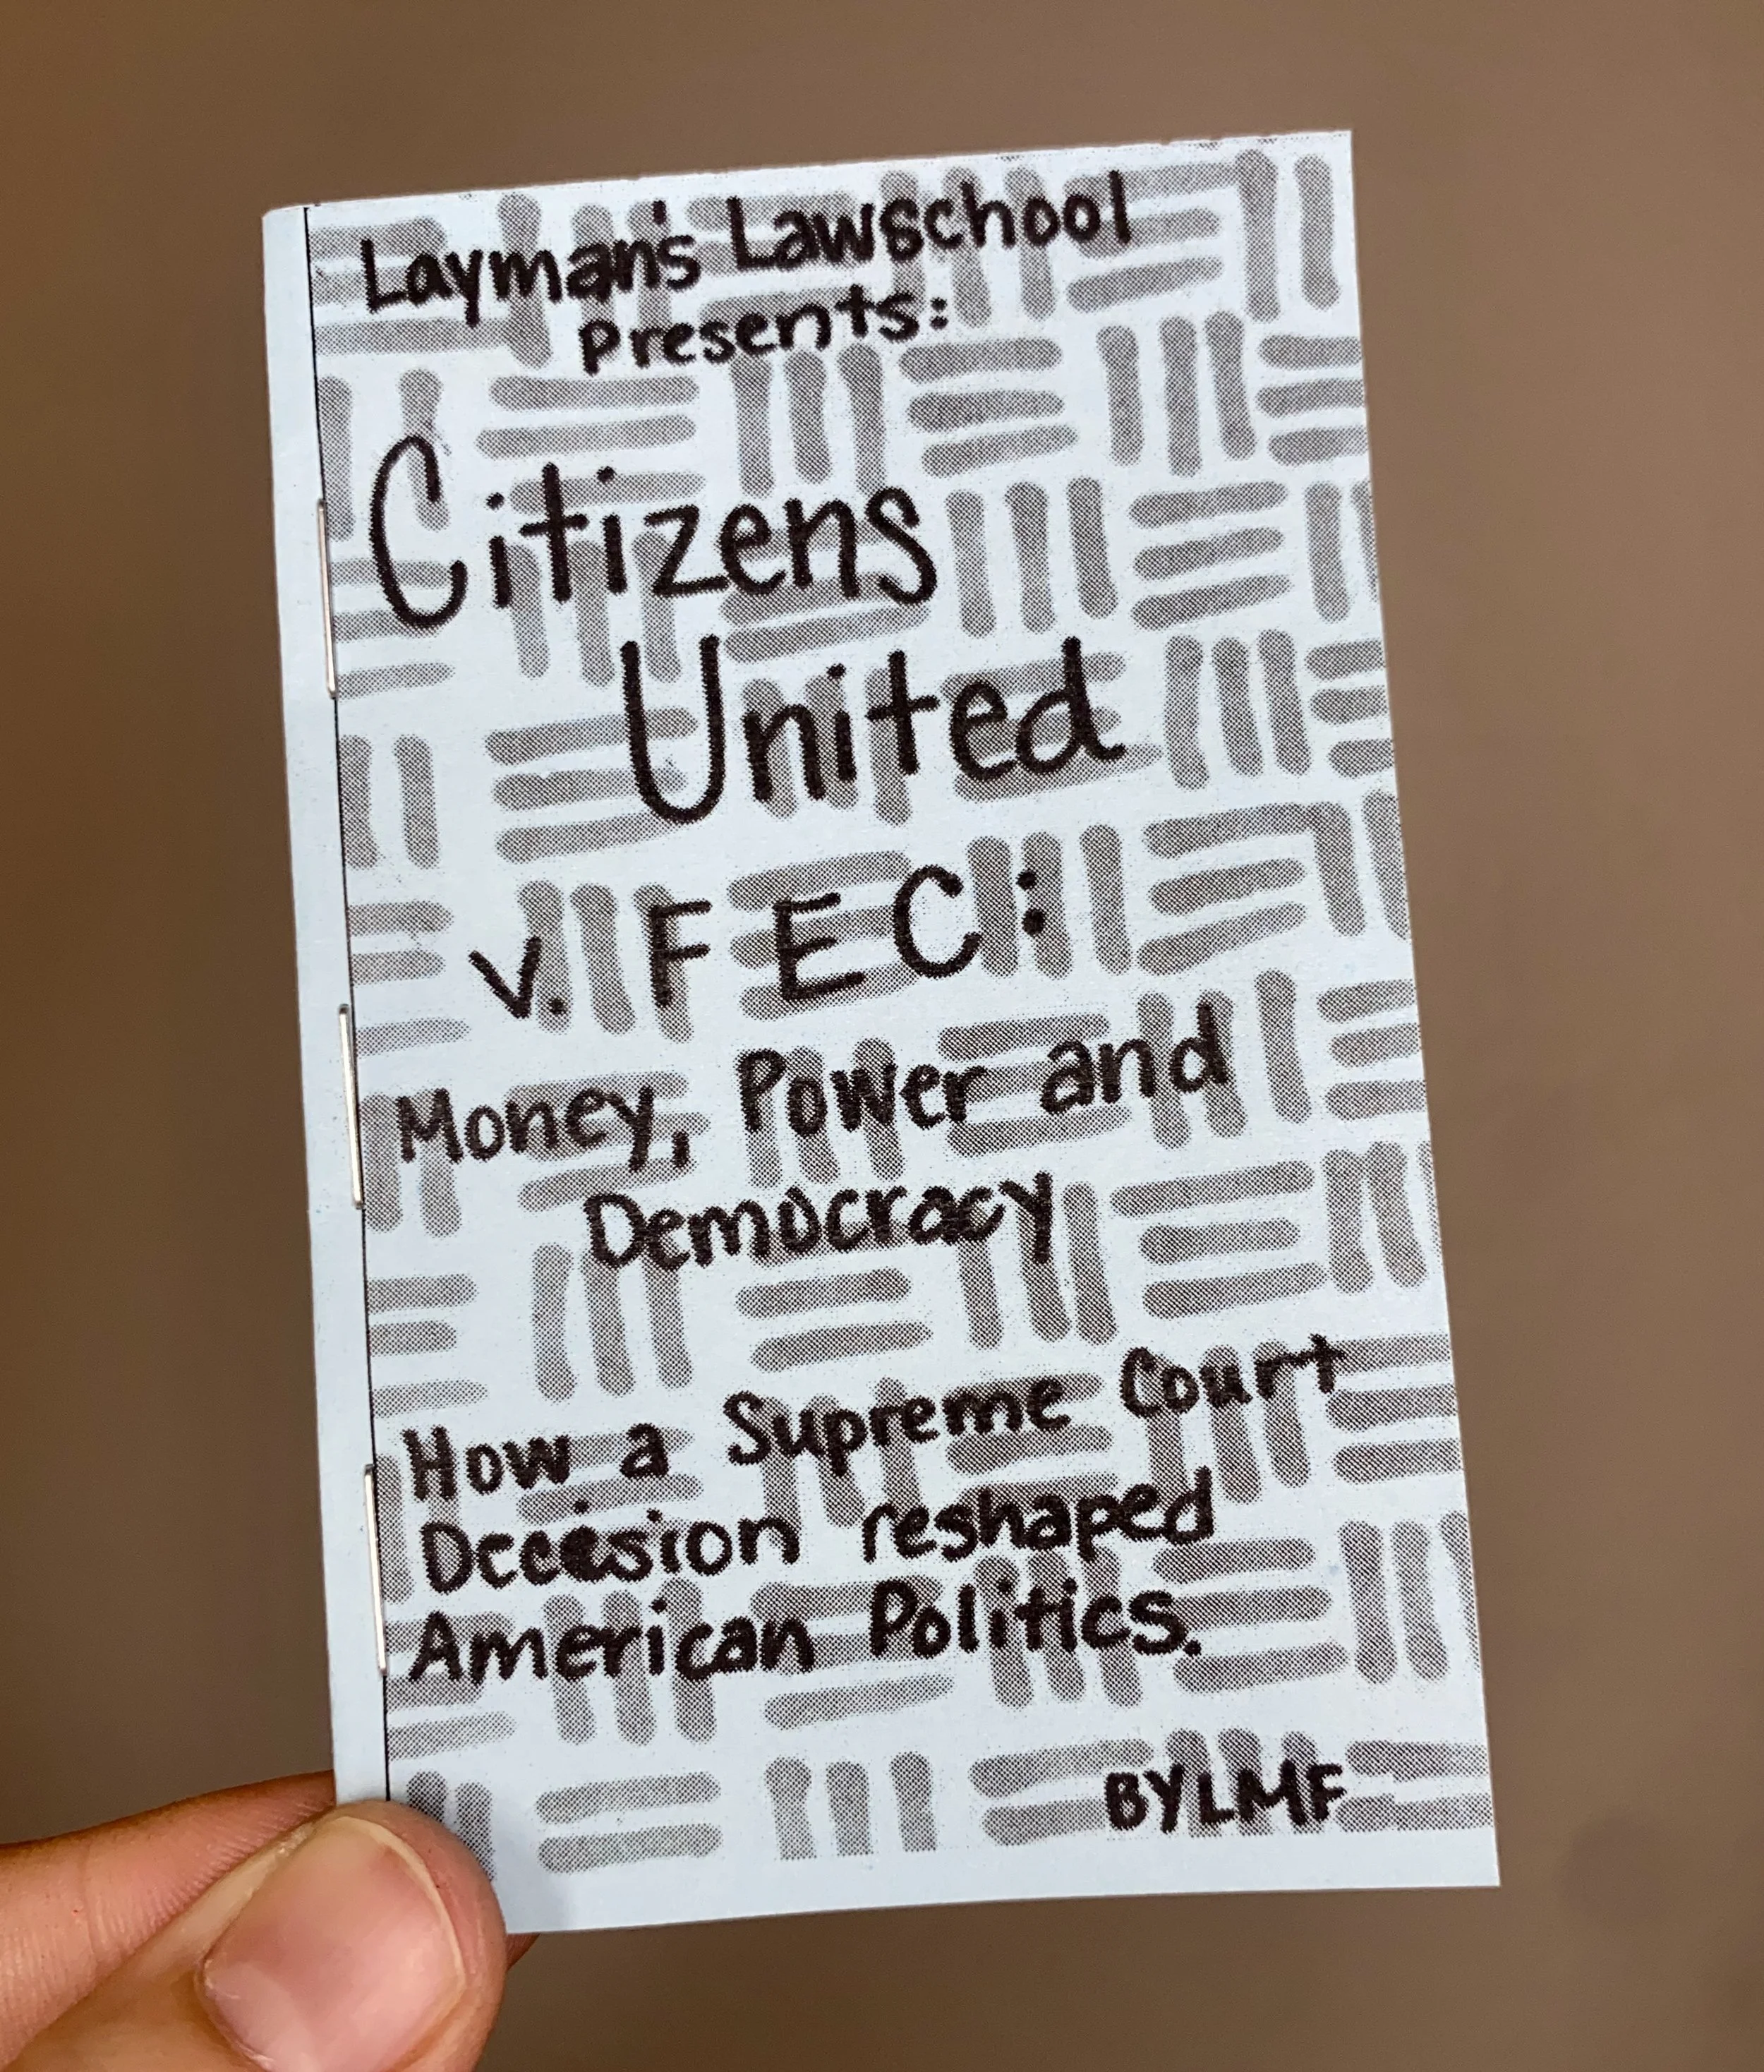 Layman's Lawschool
Presents:
Citizens
United
v. FEC:
Money, Power and
Democracy
How a Supreme Court
Decision reshaped
American Politics.
BY LMF